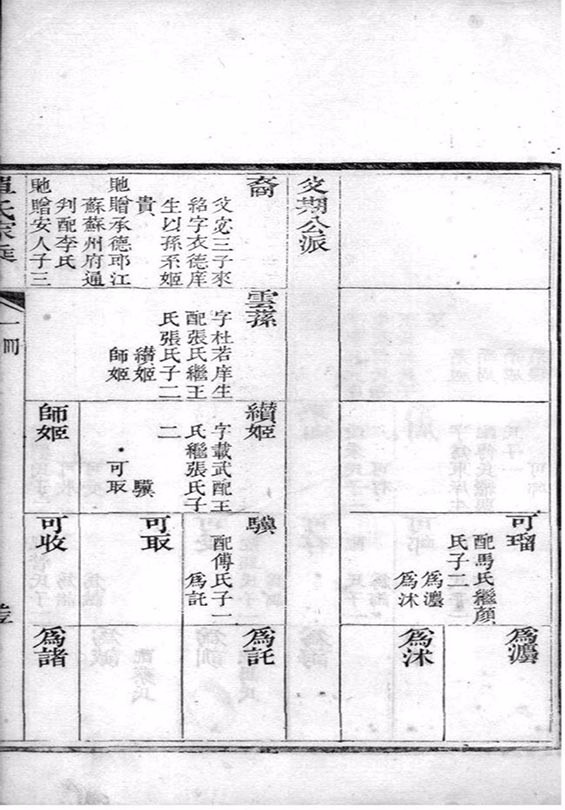 可瑠
配馬氏繼顏
氏子二
為灋
為沭
為灋
為沭
期公派
裔
三子來
紹字衣德庠
生以孫系姬
貴
貤贈承德邱江
蘇蘇州府通
判配李氏
貤贈安人子三
雲蓀
字杜若庠生
配張氏繼王
氏張氏子二
纘姬
師姬
纘姬
字載武配王
氏繼張氏子
二
驥
可取
驥
配傅氏子二
為託
為託
可取
師姬
可收
為諸
氏家乘
一冊